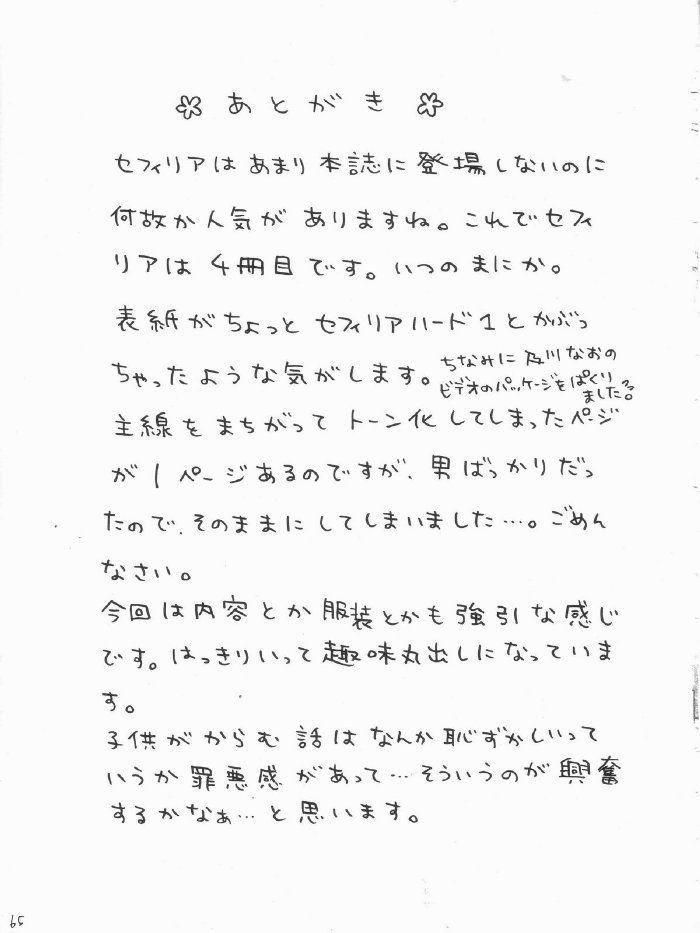 あとがき
セフィリアはあまり本誌に登場しないのに
何故か人気がありますね。これでセフィ
リアは4冊目です。いつのまにか。
表紙がちょっとセフィリアハード1とかぶっ
ちゃったような気がします。
ちなみに及川なおの
ビデオのパッケージをぱくり
ました?。
主線をまちがってトーン化してしまったページ
が1ページあるのですが、男ばっかりだっ
たので、そのままにしてしまいました…。ごめん
なさい。
今回は内容とか服装とかも強引な感じ
です。はっきりいって趣味丸出しになっていま
す。
子供がからむ話はなんか恥ずかしいって
いうか罪悪感があって…そういうのが興奮
するかなぁ…と思います。
65